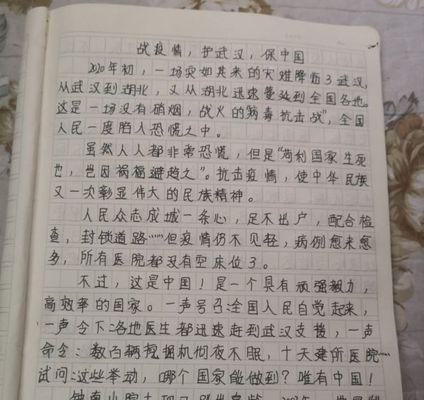 战疫情，护武汉，保中国
2020年初，一场突如其来的灾难降临了武汉，
从武汉到湖北，又从湖北迅速蔓延到全国各地。
这是一场没有硝烟，战火的"病毒抗击战"，全国
人民一度陷入恐慌之中。
虽然人人都非常恐慌，但是"苟利国家生死
以，岂因祸福避趋之"。抗击疫情，使中华民族
又一次彰显伟大的民族精神。
人民众志成城一条心，足不出户，配合检
查，封锁道路……但疫情仍不见轻，病例愈来愈
多，所有医院都没有空床位了。
不过，这是中国！是一个具有顽强毅力，
高效率的国家。一声号召：全国人民自觉起来，
一声令下：各地医生都迅速赶到武汉支援，一声
命令：数百辆挖掘机彻夜不眠，十天建所医院……
试问：这些举动，哪个国家能做到？唯有中国！
钟南山院士